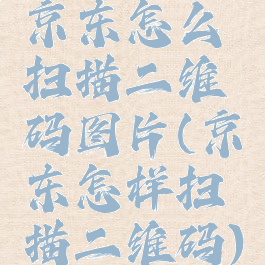 京东怎么
扫描二维
码图片(京
东怎样扫
描二维码)